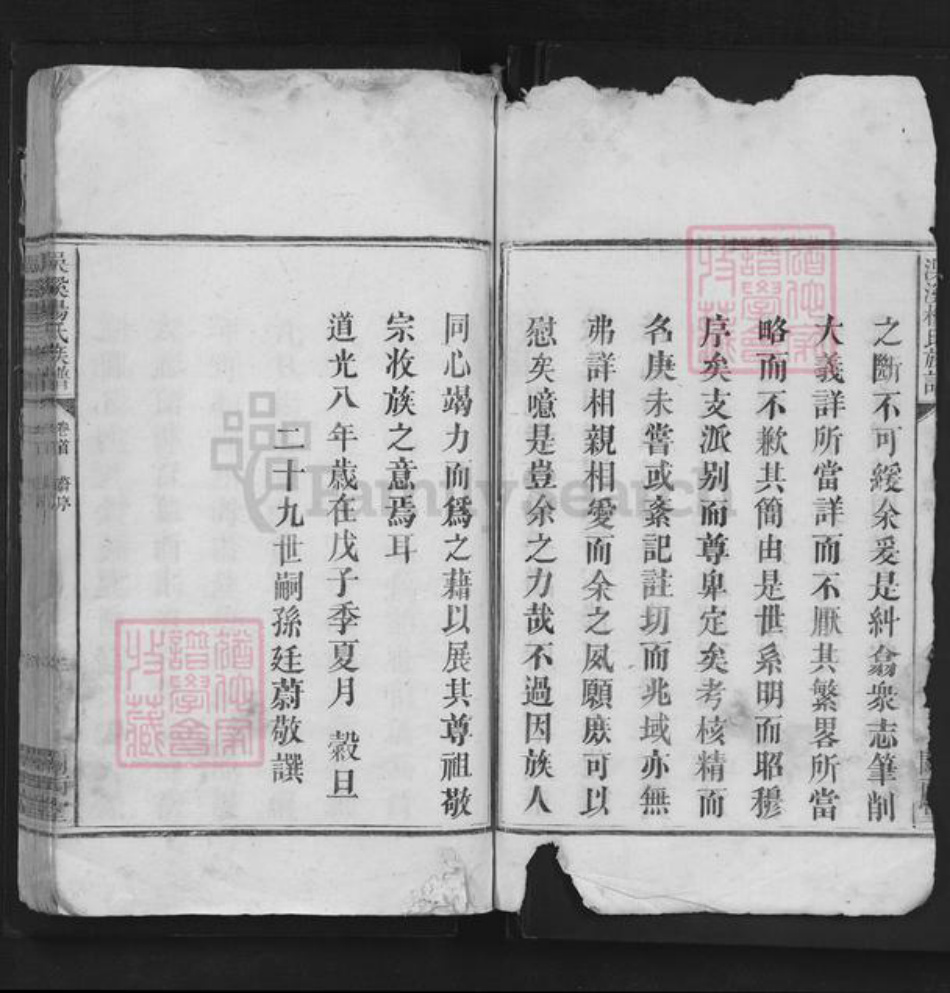 之斷不可緩余爰是糾翕衆志筆削
大義詳所當詳而不厭其繁畧所當
略而不歉其簡由是世系明而昭穆
序矣支派别而尊卑定矣考核精而
名庚未嘗或紊記註切而兆域亦無
弗詳相親相愛而余之夙願庶可以
慰矣噫是豈余之力哉不過因族人
同心竭力而爲之藉以展其尊祖敬
宗收族之意焉耳
道光八年歲在戊子季夏月 穀旦
二十九世嗣孫廷蔚敬譔
氏族譜 卷首
FamilySearch
譜學會
收藏
譜學會
收藏